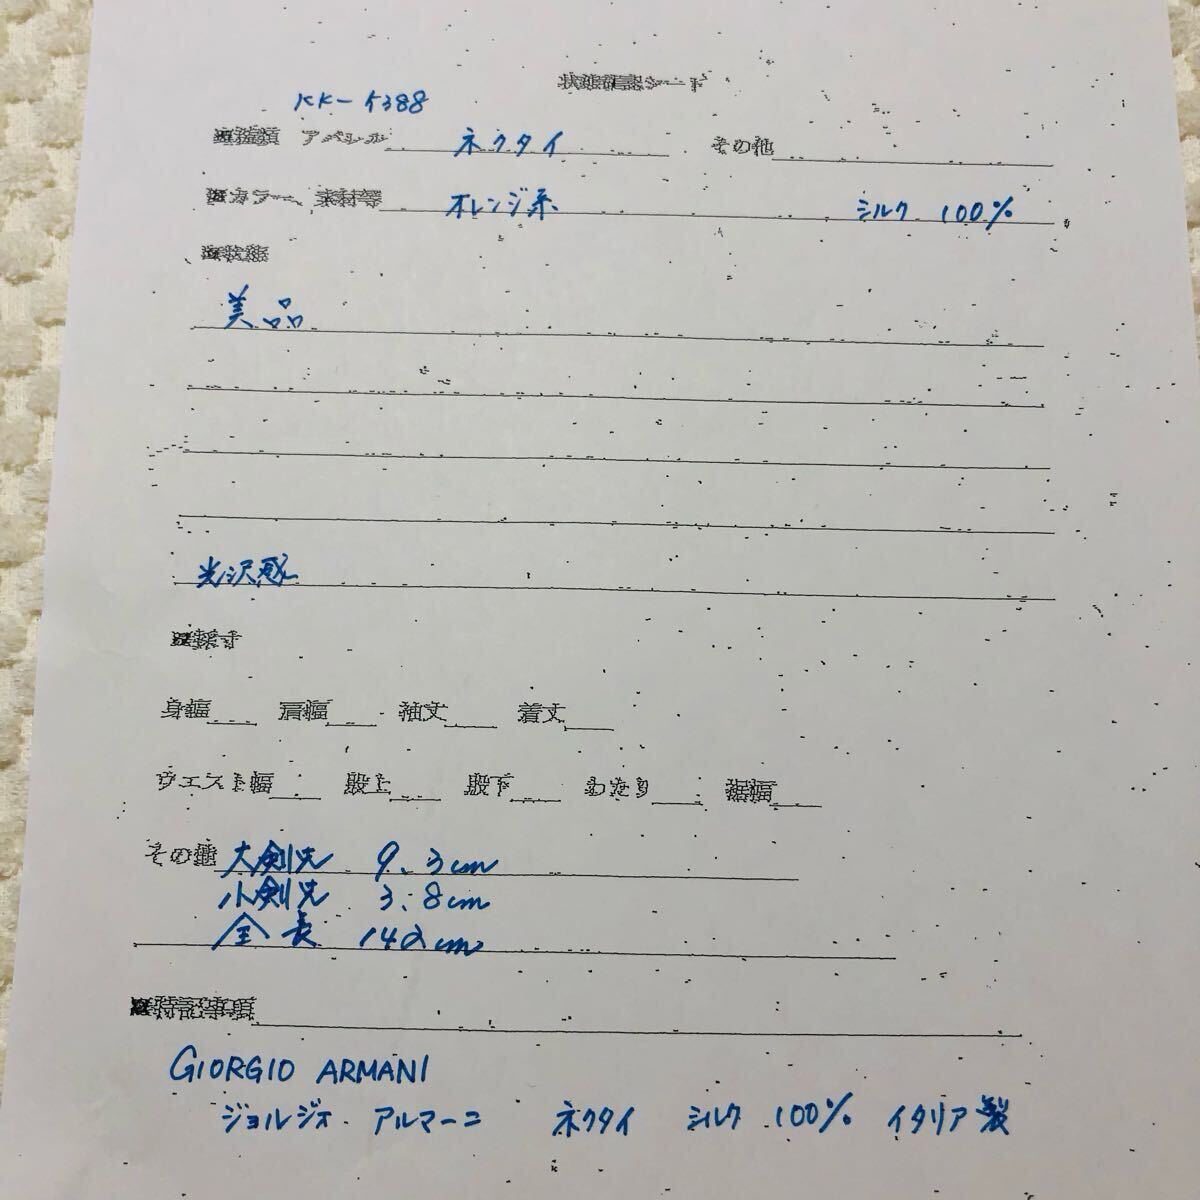 状態確認シート
KK-K388
■種類 アパレル ネクタイ その他
■カラー、素材等 オレンジ系 シルク 100%
■状態
美品
光沢感
■採寸
身幅 肩幅 袖丈 着丈
ウエスト幅 股上 股下 わたり 裾幅
その他 大剣先 9.3cm
小剣先 3.8cm
全長 142cm
■特記事項
GIORGIO ARMANI
ジョルジオ アルマーニ ネクタイ シルク 100% イタリア製